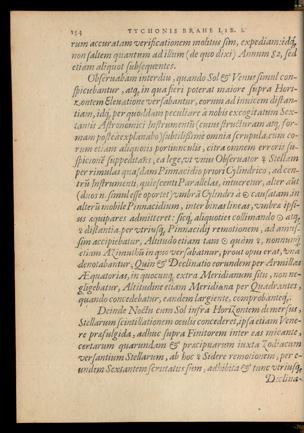 154 TYCHONIS BRAHE LIB. I.
rum accuratam verificationem molitus sim, expediam: idq,
non saltem quantum ad illum (de quo dixi) Annum 82, sed
etiam aliquot subsequentes.
Observabam interdiu, quando Sol & Venus simul con-
spiciebantur, atq, in qua fieri poterat maiore supra Hori-
zontem Elevatione versabantur, eorum ad invicem distan-
tiam, idq, per quoddam peculiare a nobis excogitatum Sex-
tantis Astronomici Instrumentū (cuius structuram atq, for-
mam posteà explanabo) subtilissime omnia scrupula, tum co-
rum etiam aliquotis portiunculis, citra omnem erroris su-
spicionē suppeditans, ea lege, vt vnus Observator & Stellam
per rimulas quasdam Pinnacidio priori Cylindrico, ad cen-
trū Instrumenti, quiescenti Parallelas, intueretur, alter aūt
(duos n. simul esse oportet) vmbrā Cylindri à ☉ causatam in
alterū mobile Pinnacidium, inter binas lineas, vmbræ ipsi-
us æquipares admitteret: sicq, aliquoties collimando ☉ atq,
♀ distantia, per vtriusq, Pinnacidij remotionem, ad amus-
sim accipiebatur, Altitudo etiam tam ☉ quàm ♀, nonnunq
etiam Azimutha in quo versabantur, prout opus erat, vna
denotabantur, Quin & Declinatio eorundem per Armillas
Æquatorias, in quocunq, extra Meridianum situ, non ne-
gligebatur, Altitudine etiam Meridiana per Quadrantes,
quando concedebatur, eandem largiente, comprobanteq,.
Deinde Noctu cum Sol infra Horizontem demersus,
Stellarum scintillationem oculis concederet, ipsa etiam Vene-
re præfulgida, adhuc supra Finitorem inter eas micante,
certarum quarundam & præcipuarum iuxta Zodiacum
versantium Stellarum, ab hoc ♀ Sidere remotionem, per e-
undem Sextantem scrutatus sum, adhibita & tunc vtriusq,
Declina-